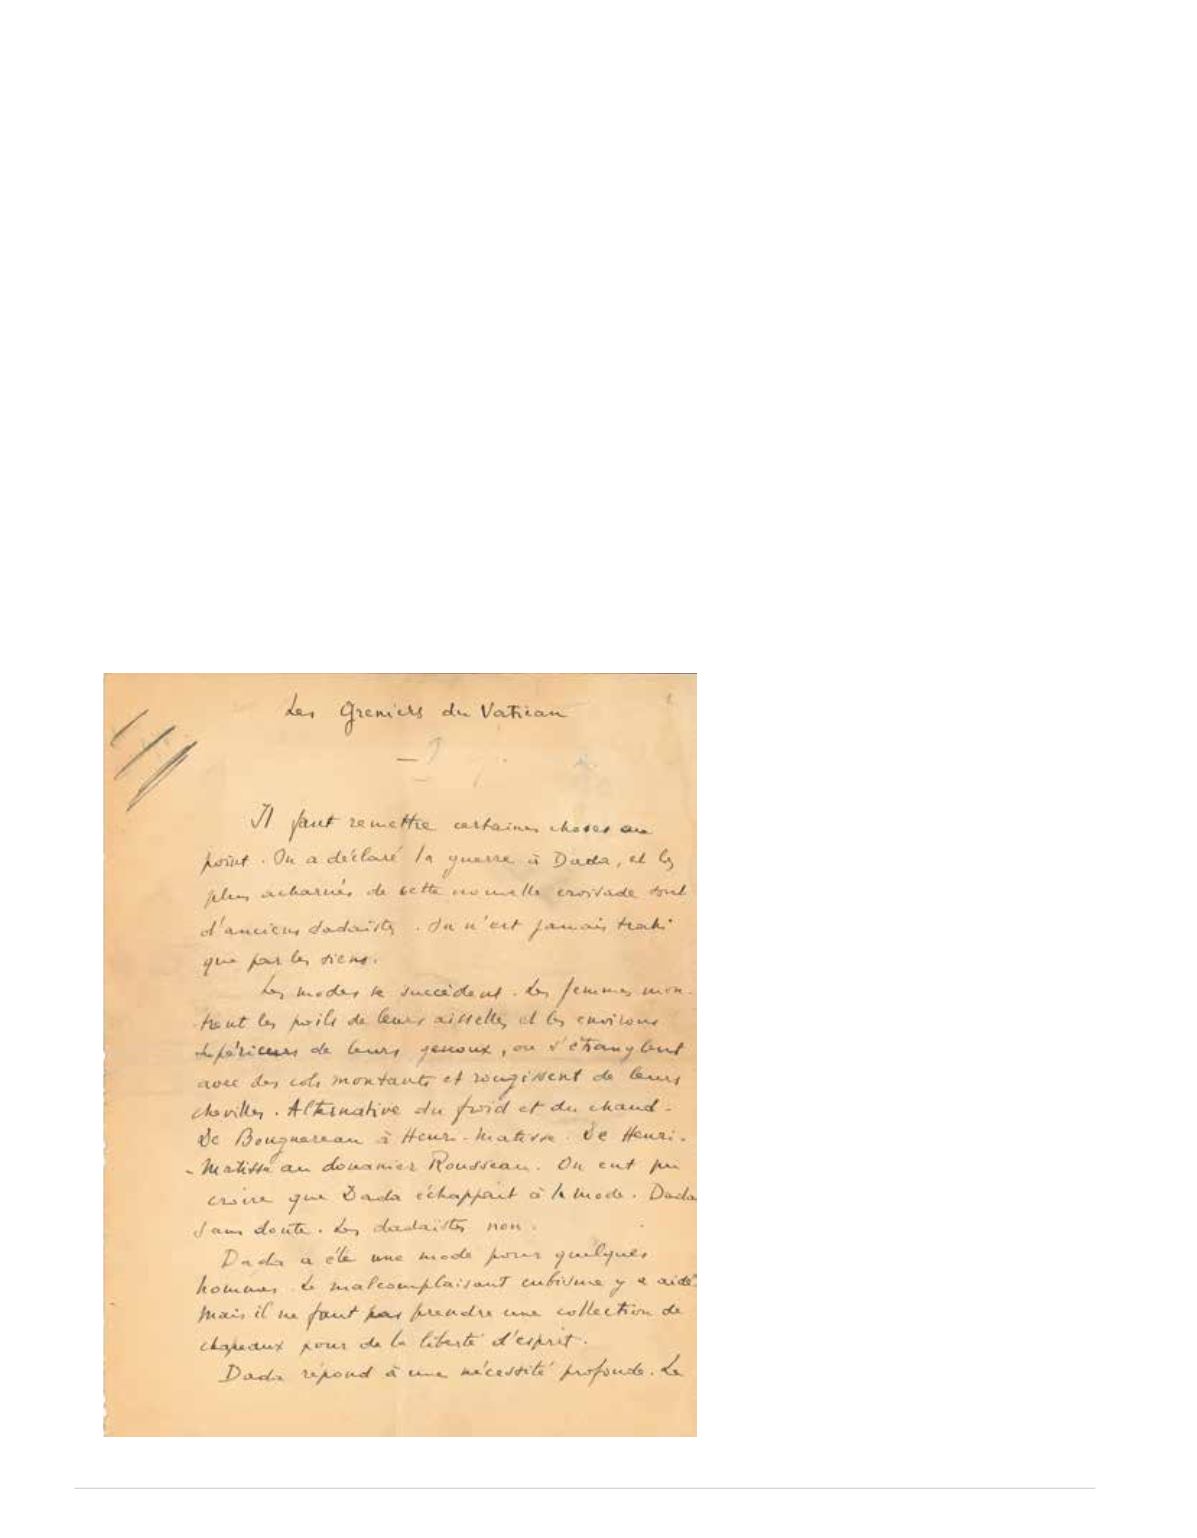 Les Greniers du Vatican
Il faut remettre certaines choses au
point. On a déclaré la guerre à Dada, et les
plus acharnés de cette nouvelle croisade sont
d'anciens dadaïstes. On n'est jamais trahi
que par les siens.
Les modes se succèdent. Les femmes mon-
trent les poils de leurs aisselles et les environs
supérieurs de leurs genoux, ou s'étranglent
avec des cols montants et rougissent de leurs
chevilles. Alternative du froid et du chaud.
De Bouguereau à Henri-Matisse. De Henri-
-Matisse au douanier Rousseau. On eut pu
croire que Dada échappait à la mode. Dada
sans doute. Les dadaïstes non.
Dada a été une mode pour quelques
hommes. Le malcomplaisant cubisme y a aidé.
Mais il ne faut pas prendre une collection de
chapeaux pour de la liberté d'esprit.
Dada répond à une nécessité profonde. Le